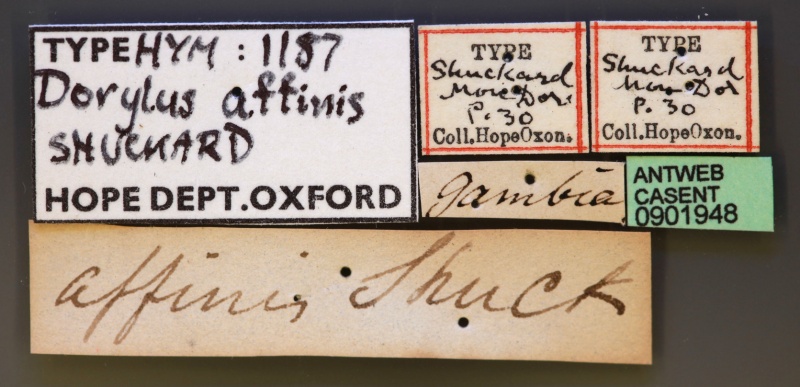 TYPE HYM : 1187
Dorylus affinis
SHUCKARD
HOPE DEPT.OXFORD
TYPE
Shuckard
Mon Dor.
P. 30
Coll.HopeOxon.
TYPE
Shuckard
Mon Dor
P. 30
Coll.HopeOxon.
Gambia
ANTWEB
CASENT
0901948
affinis Shuck